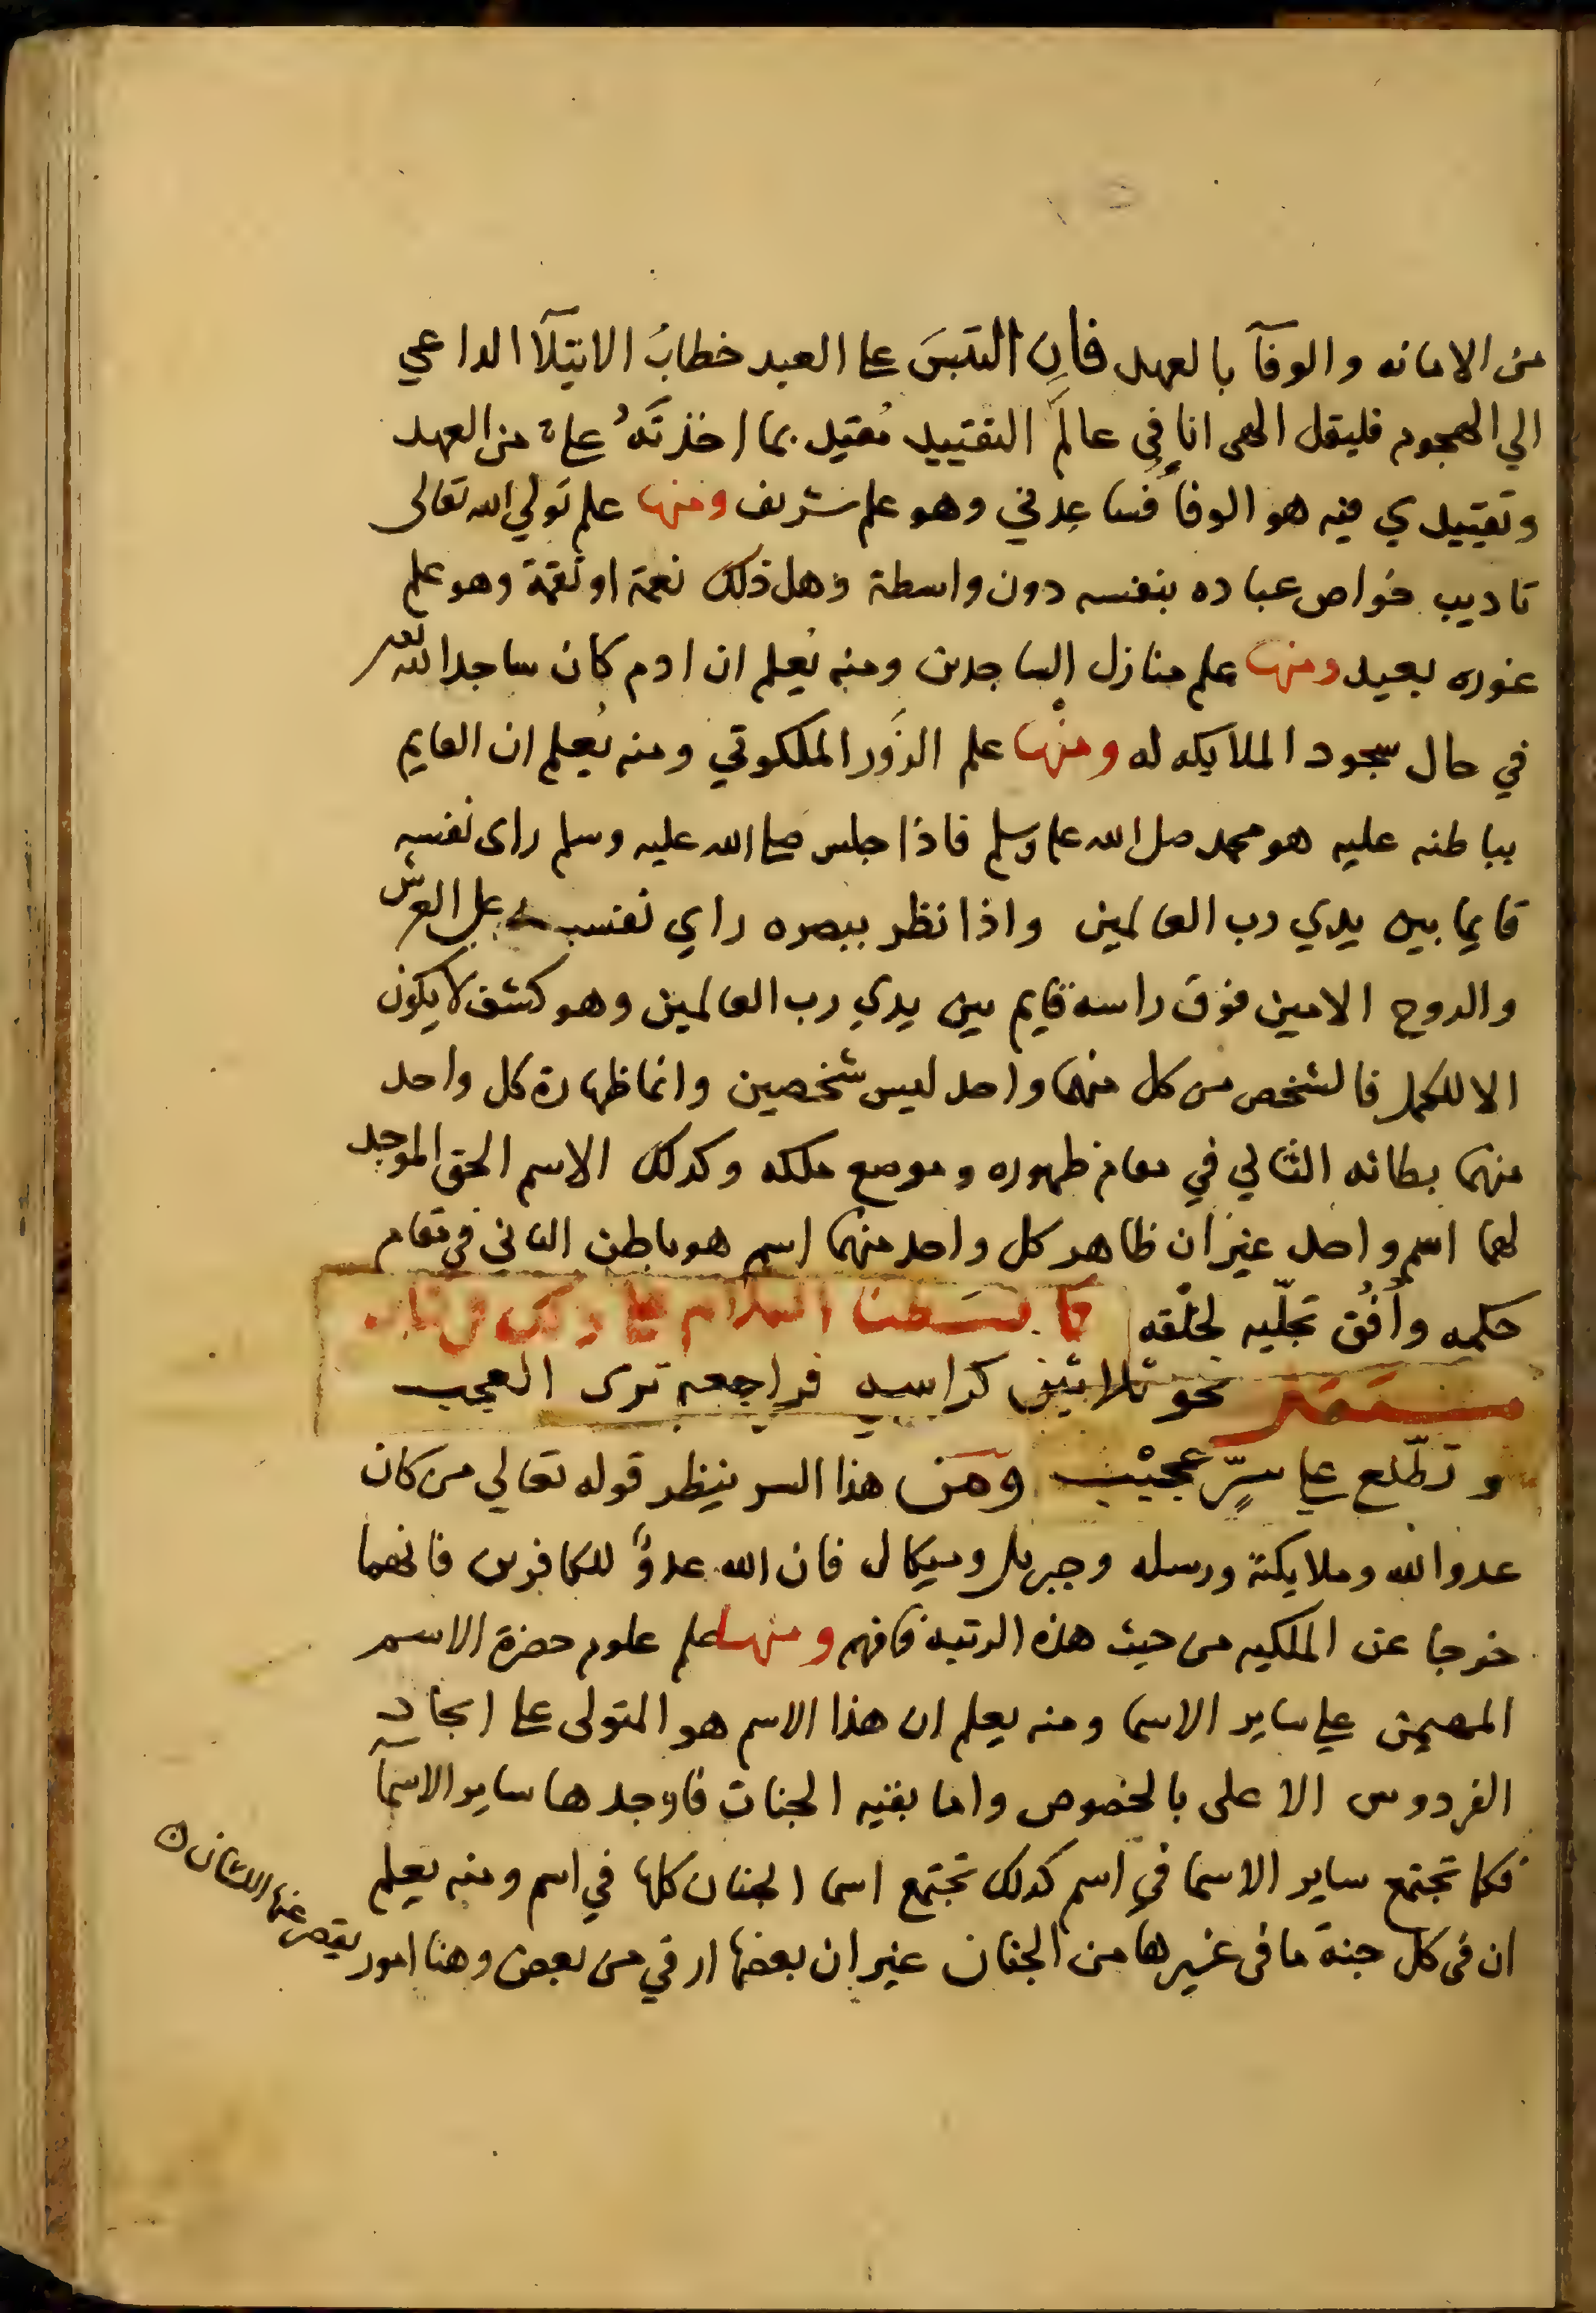 من الامانه والوفآ بالعهد فان التبسَ على العبد خطابُ الابتلآ الداعي
الي الهجوم فليقل الهى انا في عالَم التقييد مُقيد بما اخذتَهُ علىَّ من العهد
وتقييدي فيه هو الوفا فساعِدني وهو علم شريف ومنها علم تولي الله تعالى
تاديب خواص عباده بنفسه دون واسطة وهل ذلك نعمة او نقمة وهو علم
غوره بعيد ومنها علم منازل الساجدين ومنه يُعلم ان ادم كان ساجدا لله
في حال سجود الملايكه له ومنها علم الزَور الملكوتي ومنه يُعلم ان القايم
بباطنه عليه هو محمد صلى الله عليه وسلم فاذا جلس صلى الله عليه وسلم راى نفسه
قايما بين يدي رب العالمين واذا نظر ببصره راي نفسه على العرش
والروح الامين فوق راسه قايم بين يدي رب العالمين وهو كشف لا يكون
الا للكمل فالشخص من كل منهما واحد ليس شخصين وانما ظهارة كل واحد
منهما بطانه الثاني في مقام ظهوره وموضع ملكه وكذلك الاسم الحق الموجد
لهما اسم واحد غير ان ظاهر كل واحد منهما اسم هو باطن الثاني في مقام
حكمه وأفُق تجلّيه لخلقه كما بسطنا الكلام على ذلك في كتاب
نحو ثلاثين كراسه فراجعه ترى العجب
وتطّلع على سرٍّ عجيْب ومن هذا السر ينظر قوله تعالي من كان
عدوا لله وملايكته ورسله وجبريل وميكال فان الله عدوٌّ للكافرين فانهما
خرجا عن الملكيه من حيث هذه الرتبه فافهم ومنها علم علوم حضرة الاسم
المهيمن على ساير الاسما ومنه يعلم ان هذا الاسم هو المتولى على ايجاد
الفردوس الاعلى بالخصوص واما بقيه الجنات فاوجدها ساير الاسمآ
فكما تجتمع ساير الاسما في اسم كذلك تجتمع اسما الجنان كلها في اسم ومنه يعلم
ان في كل جنة ما في غيرها من الجنان غير ان بعضها ارقي من بعض وهنا امور يقصر عنها اللسان